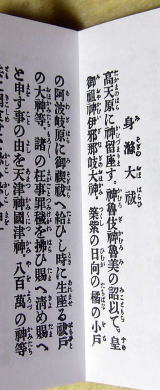 身滌大祓
高天原に神留座す。神魯伎神魯美の詔以て。皇
御祖神伊邪那岐大神。筑紫の日向の橘の小戸
の阿波岐原に御禊祓へ給ひし時に生座る祓戸
の大神等。諸の枉事罪穢を拂ひ賜へ清め賜へ
と申す事の由を天津神國津神。八百萬の神等